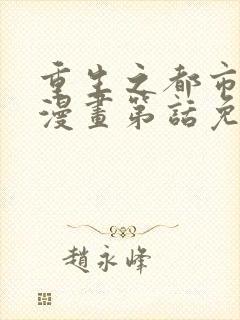 重生之都市
漫畫第話免
趙永峰